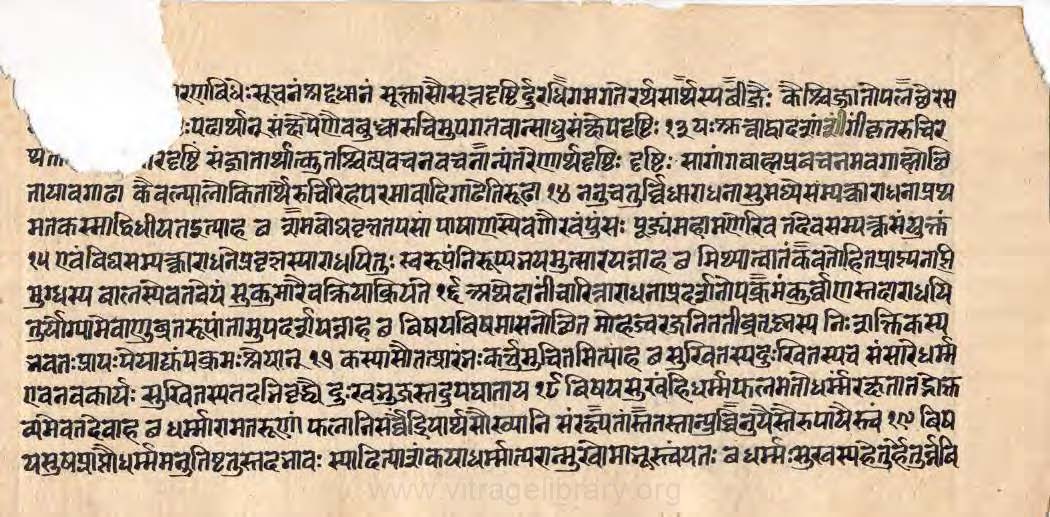 रणविधेः सूचनं श्रद्दधानं सूक्तासौ सूत्रदृष्टिर्दुरधिगमगतेरर्थसार्थस्य बीजैः कैश्चिज्जातोपलब्धेरसम
पदार्थान् संक्षेपेणैव बुध्वा रुचिमुपगतवान्साधु संक्षेपदृष्टिः १३ यः श्रुत्वा द्वादशांगीं कृतरुचिर
थ तं विस्तारदृष्टिं संजातार्थात्कुतश्चित्प्रवचनवचनान्यंतरेणार्थदृष्टिः दृष्टिः सांगांगबाह्यप्रवचनमवगाह्योत्थि
तायावगाढा कैवल्यालोकितार्थे रुचिरिह परमावादिगाढेति रूढा १४ ननु चतुर्विधाराधनासु मध्ये सम्यक्त्वाराधना प्रथ
मतः कस्माद्विधीयत इत्याह ब शमबोधवृत्ततपसां पाषाणस्येव गौरवं पुंसः पूज्यं महामणेरिव तदेव सम्यक्त्वसंयुक्तं
१५ एवंविध सम्यक्त्वाराधने प्रवृत्तस्याराधयितुः स्वरूपं निरूप्य भयमुत्सारयन्नाह ब मिथ्यात्वातंकवतो हिताप्राप्त्यनाप्ति
मुग्धस्य बालस्येव तवेयं सुकुमारैव क्रिया क्रियते १६ अथेदानीं चारित्राराधनाप्रदर्शनोपक्रमं कुर्वाणस्तदाराधयि
तुर्योग्यामेवाणुव्रतरूपां तामुपदर्शयन्नाह ब विषयविषमासनोत्थित मोहज्वरजनिततीव्रतृष्णस्य निःशक्तिकस्य
भवतः प्रायः पेयाद्युपक्रमः श्रेयान् १७ कस्यासौ तत्प्रारंभः कर्त्तुमुचितमित्याह ब सुखितस्य दुःखितस्य च संसारे धर्म्म
एव तव कार्यः सुखितस्य तदभिवृद्ध्यै दुःखभुजस्तदुपघाताय १८ विषयसुखं हि धर्म्मफलमतो धर्म्मं रक्षता तद्भोक्त
व्यमेवतदेवाह ब धर्म्मारामतरूणां फलानि सर्वेंद्रियार्थसौख्यानि संरक्ष्य तांस्ततस्तान्युच्चिनु यैस्तैरुपायैस्त्वं १९ विष
यसुखप्राप्तौ धर्म्ममनुतिष्टतस्तदभावः स्यादित्याशंकयाधर्म्मात्परान्मुखो माभूस्त्वं यतः ब धर्म्मः सुखस्य हेतुर्हेतुर्न्न वि
www.vitragelibrary.org